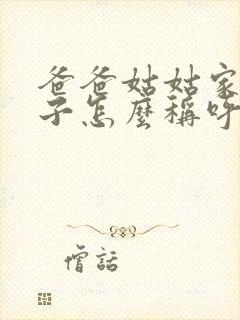 爸爸姑姑家
子怎麼稱呼
僧話